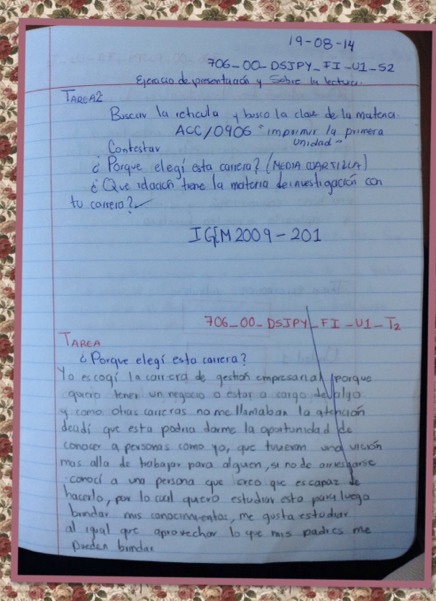 19-08-14
706-00-DSJPY-FI-U1-S2
Ejercicio de presentación y Sobre la lectura.
TAREA 2
Buscar la reticula y busco la clave de la materia.
ACC/0906 "imprimir la primera
unidad"
Contestar
¿Porque elegí esta carrera? (MEDIA CUARTILLA)
¿Que relación tiene la materia de investigación con
tu carrera?
IGEM2009-201
706-00-DSJPY-FI-U1-T2
TAREA
¿Porque elegí esta carrera?
Yo escogí la carrera de gestión empresarial porque
quiero tener un negocio o estar a cargo de algo
y como otras carreras no me llamaban la atención
decidí que esta podria darme la oportunidad de
conocer a personas como yo, que tuvieran una visión
mas alla de trabajar para alguien, si no de arriesgarse
conocí a una persona que creo que es capaz de
hacerlo, por lo cual quiero estudiar esto para luego
brindar mis conocimientos, me gusta estudiar
al igual que aprovechar lo que mis padres me
pueden brindar